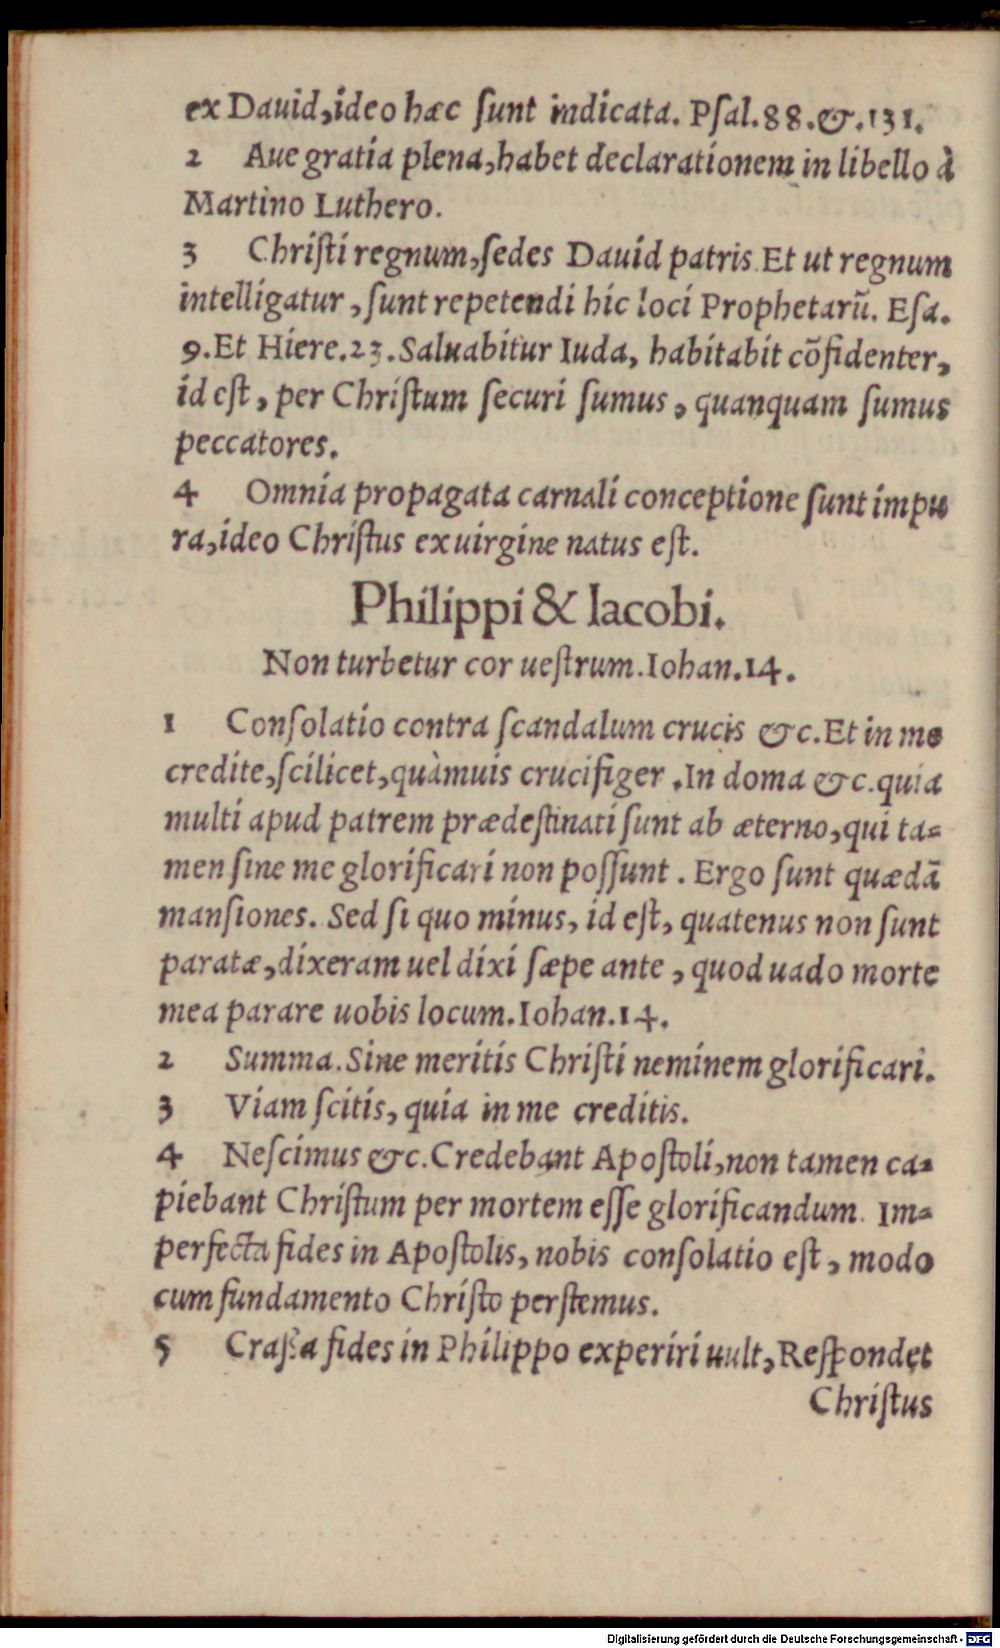 ex Dauid,ideo hæc ſunt indicata. Pſal.88.&.131.
2 Aue gratia plena,habet declarationem in libello à
Martino Luthero.
3 Chriſti regnum,ſedes Dauid patris.Et ut regnum
intelligatur,ſunt repetendi hic loci Prophetarũ. Eſa.
9.Et Hiere.23.Saluabitur Iuda, habitabit cõfidenter,
id eſt, per Chriſtum ſecuri ſumus, quanquam ſumus
peccatores.
4 Omnia propagata carnali conceptione ſunt impu
ra,ideo Chriſtus ex uirgine natus eſt.
Philippi & Iacobi.
Non turbetur cor ueſtrum.Iohan.14.
1 Conſolatio contra ſcandalum crucis &c.Et in me
credite,ſcilicet,quàmuis crucifiger.In doma &c.quia
multi apud patrem prædeſtinati ſunt ab æterno,qui ta=
men ſine me glorificari non poſſunt. Ergo ſunt quædã
manſiones. Sed ſi quo minus, id eſt, quatenus non ſunt
paratæ,dixeram uel dixi ſæpe ante, quod uado morte
mea parare uobis locum.Iohan.14.
2 Summa.Sine meritis Chriſti neminem glorificari.
3 Viam ſcitis, quia in me creditis.
4 Neſcimus &c.Credebant Apoſtoli,non tamen ca=
piebant Chriſtum per mortem eſſe glorificandum. Im=
perfecta fides in Apoſtolis, nobis conſolatio eſt, modo
cum fundamento Chriſto perſtemus.
5 Craßa fides in Philippo experiri uult,Reſpondet
Chriſtus
Digitalisierung gefördert durch die Deutsche Forschungsgemeinschaft - DFG